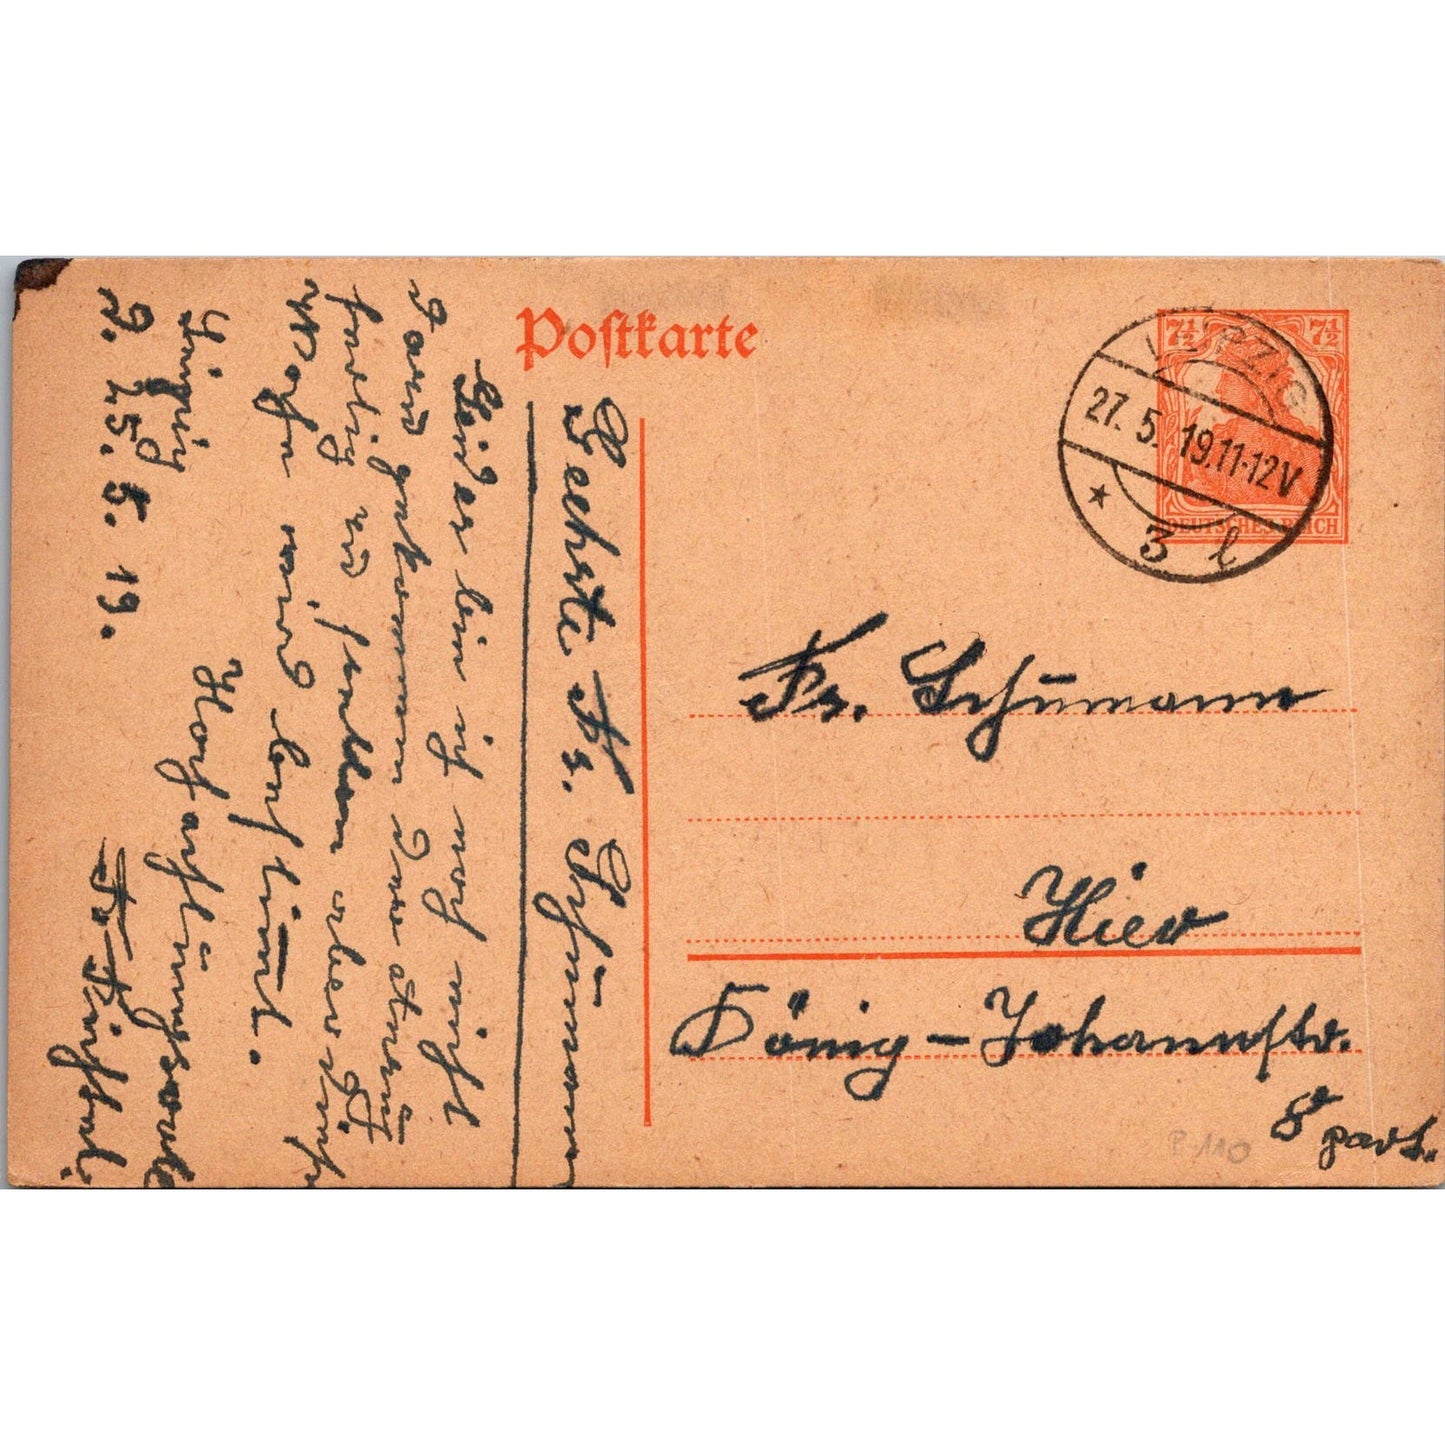 Postkarte
7½ 7½
DEUTSCHES REICH
LEIPZIG
27. 5. 19. 11-12 V
* 3 l
Fr. Schumann
Hier
König-Johannstr.
8 part.
P 110
Geehrte Fr. Schumann
Leider bin ich noch nicht
dazu gekommen
fertig zu aber
Woche wird bestimmt.
Hochachtungsvoll
Fr.
Leipzig
d. 25. 5. 19.